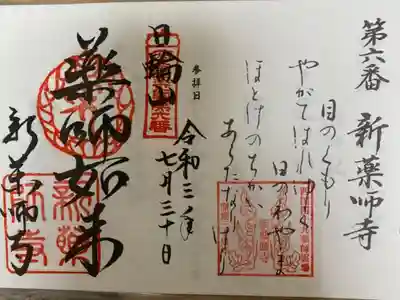 第六番 新薬師寺
目のくもり
やがてはれゆく
日のわやま
ほとけのちかい
あらたなりけり
参拝日
令和三年
七月三十日
日輪山
薬師如来
新薬師寺